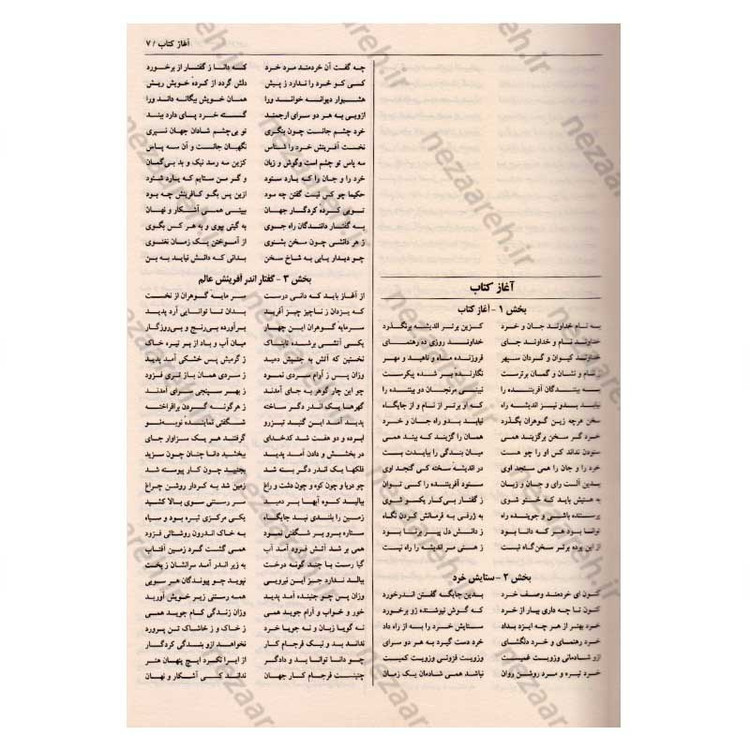 آغاز کتاب / ۷
آغاز کتاب
بخش ۱ - آغاز کتاب
به نام خداوند جان و خرد کزین برتر اندیشه برنگذرد
خداوند نام و خداوند جای خداوند روزی ده رهنمای
خداوند کیوان و گردان سپهر فروزنده ماه و ناهید و مهر
ز نام و نشان و گمان برترست نگارنده بر شده پیکرست
به بینندگان آفریننده را نبینی مرنجان دو بیننده را
نیابد بدو نیز اندیشه راه که او برتر از نام و از جایگاه
سخن هرچه زین گوهران بگذرد نیابد بدو راه جان و خرد
خرد گر سخن برگزیند همی همان را گزیند که بیند همی
ستودن نداند کس او را چو هست میان بندگی را ببایدت بست
خرد را و جان را همی سنجد اوی در اندیشه سخته کی گنجد اوی
بدین آلت رای و جان و زبان ستود آفریننده را کی توان
به هستیش باید که خستو شوی ز گفتار بی‌کار یکسو شوی
پرستنده باشی و جوینده راه به ژرفی به فرمانش کردن نگاه
توانا بود هر که دانا بود ز دانش دل پیر برنا بود
از این پرده برتر سخن‌گاه نیست ز هستی مر اندیشه را راه نیست
بخش ۲ - ستایش خرد
کنون ای خردمند وصف خرد بدین جایگه گفتن اندرخورد
کنون تا چه داری بیار از خرد که گوش نیوشنده زو برخورد
خرد بهتر از هر چه ایزد بداد ستایش خرد را به از راه داد
خرد رهنمای و خرد دلگشای خرد دست گیرد به هر دو سرای
ازو شادمانی وزویت غمیست وزویت فزونی وزویت کمیست
خرد تیره و مرد روشن روان نباشد همی شادمان یک زمان
چه گفت آن خردمند مرد خرد که دانا ز گفتار از برخورد
کسی کو خرد را ندارد ز پیش دلش گردد از کرده خویش ریش
هشیوار دیوانه خواند ورا همان خویش بیگانه داند ورا
ازویی به هر دو سرای ارجمند گسسته خرد پای دارد ببند
خرد چشم جانست چون بنگری تو بی‌چشم شادان جهان نسپری
نخست آفرینش خرد را شناس نگهبان جانست و آن سه پاس
سه پاس تو چشم است وگوش و زبان کزین سه رسد نیک و بد بی‌گمان
خرد را و جان را که یارد ستود و گر من ستایم که یارد شنود
حکیما چو کس نیست گفتن چه سود ازین پس بگو کافرینش چه بود
تویی کرده کردگار جهان ببینی همی آشکار و نهان
به گفتار دانندگان راه جوی به گیتی پوی و به هر کس بگوی
ز هر دانشی چون سخن بشنوی از آموختن یک زمان نغنوی
چو دیدار یابی به شاخ سخن بدانی که دانش نیابد به بن
بخش ۳ - گفتار اندر آفرینش عالم
از آغاز باید که دانی درست سر مایه گوهران از نخست
که یزدان ز ناچیز چیز آفرید بدان تا توانایی آرد پدید
سرمایه گوهران این چهار برآورده بی‌رنج و بی‌روزگار
یکی آتشی برشده تابناک میان آب و باد از بر تیره خاک
نخستین که آتش به جنبش دمید ز گرمیش پس خشکی آمد پدید
وزان پس ز آرام سردی نمود ز سردی همان باز تری فزود
چو این چار گوهر به جای آمدند ز بهر سپنجی سرای آمدند
گهرها یک اندر دگر ساخته ز هرگونه گردن برافراخته
پدید آمد این گنبد تیزرو شگفتی نماینده نوبه‌نو
ابرده و دو هفت شد کدخدای گرفتند هر یک سزاوار جای
در بخشش و دادن آمد پدید ببخشید دانا چنان چون سزید
فلکها یک اندر دگر بسته شد بجنبید چون کار پیوسته شد
چو دریا و چون کوه و چون دشت و راغ زمین شد به کردار روشن چراغ
ببالید کوه آبها بر دمید سر رستنی سوی بالا کشید
زمین را بلندی نبد جایگاه یکی مرکزی تیره بود و سیاه
ستاره برو بر شگفتی نمود به خاک اندرون روشنائی فزود
همی بر شد آتش فرود آمد آب همی گشت گرد زمین آفتاب
گیا رست با چند گونه درخت به زیر اندر آمد سرانشان ز بخت
ببالد ندارد جز این نیرویی نپوید چو پیوندگان هر سویی
وزان پس چو جنبنده آمد پدید همه رستنی زیر خویش آورید
خور و خواب و آرام جوید همی وزان زندگی کام جوید همی
نه گویا زبان و نه جویا خرد ز خاک و ز خاشاک تن پرورد
نداند بد و نیک فرجام کار نخواهد ازو بندگی کردگار
چو دانا توانا بد و دادگر از ایرا نکرد ایچ پنهان هنر
چنینست فرجام کار جهان نداند کسی آشکار و نهان
nezaareh.ir